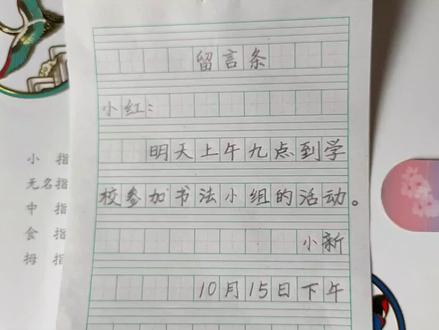 留言条
小红：
明天上午九点到学
校参加书法小组的活动。
小新
10月15日下午
小 指
无名指
中 指
食 指
拇 指